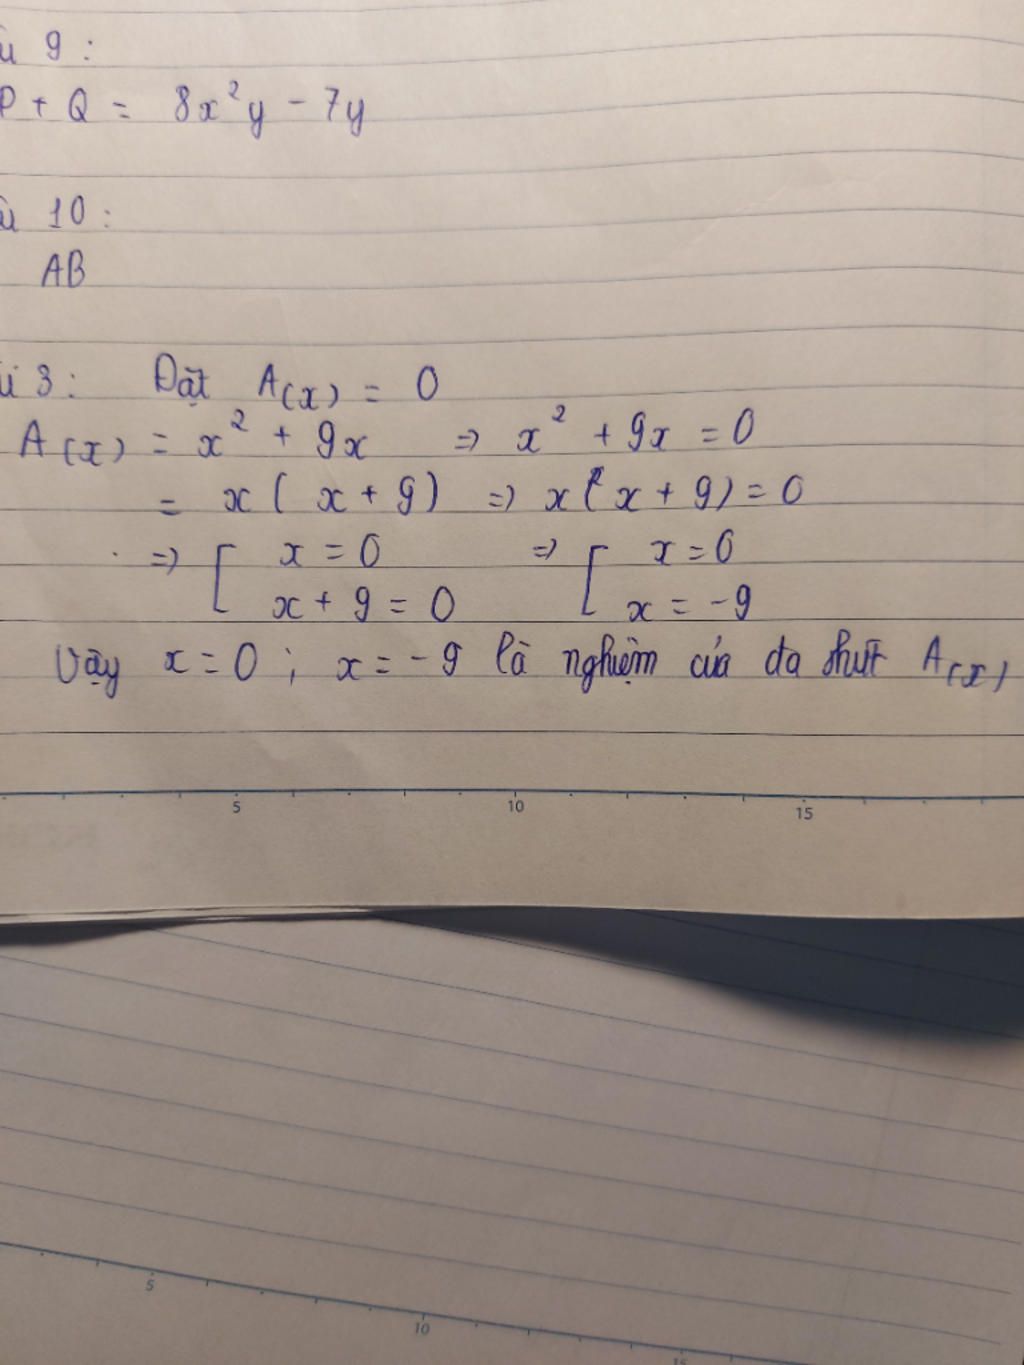 u 9 :
P + Q = 8x²y - 7y
u 10 :
AB
i 3 : Đặt A(x) = 0
A(x) = x² + 9x => x² + 9x = 0
= x ( x + 9 ) => x ( x + 9 ) = 0
=> [ x = 0 => [ x = 0
x + 9 = 0 x = -9
Vậy x = 0 ; x = -9 là nghiệm của đa thức A(x)
5 10 15
5 10 15